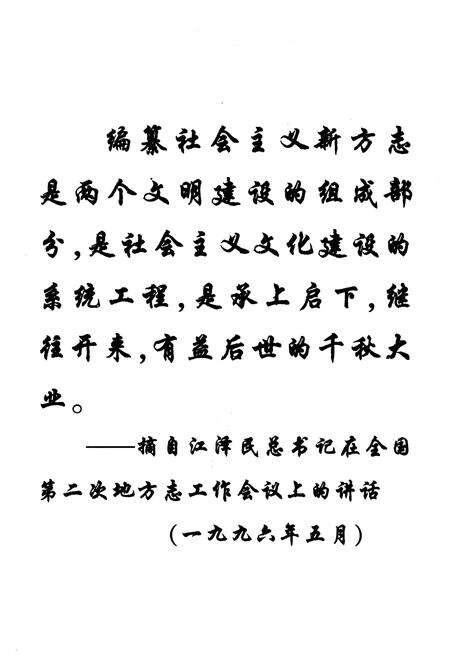 编纂社会主义新方志
是两个文明建设的组成部
分,是社会主义文化建设的
系统工程,是承上启下,继
往开来,有益后世的千秋大
业。
——摘自江泽民总书记在全国
第二次地方志工作会议上的讲话
(一九九六年五月)